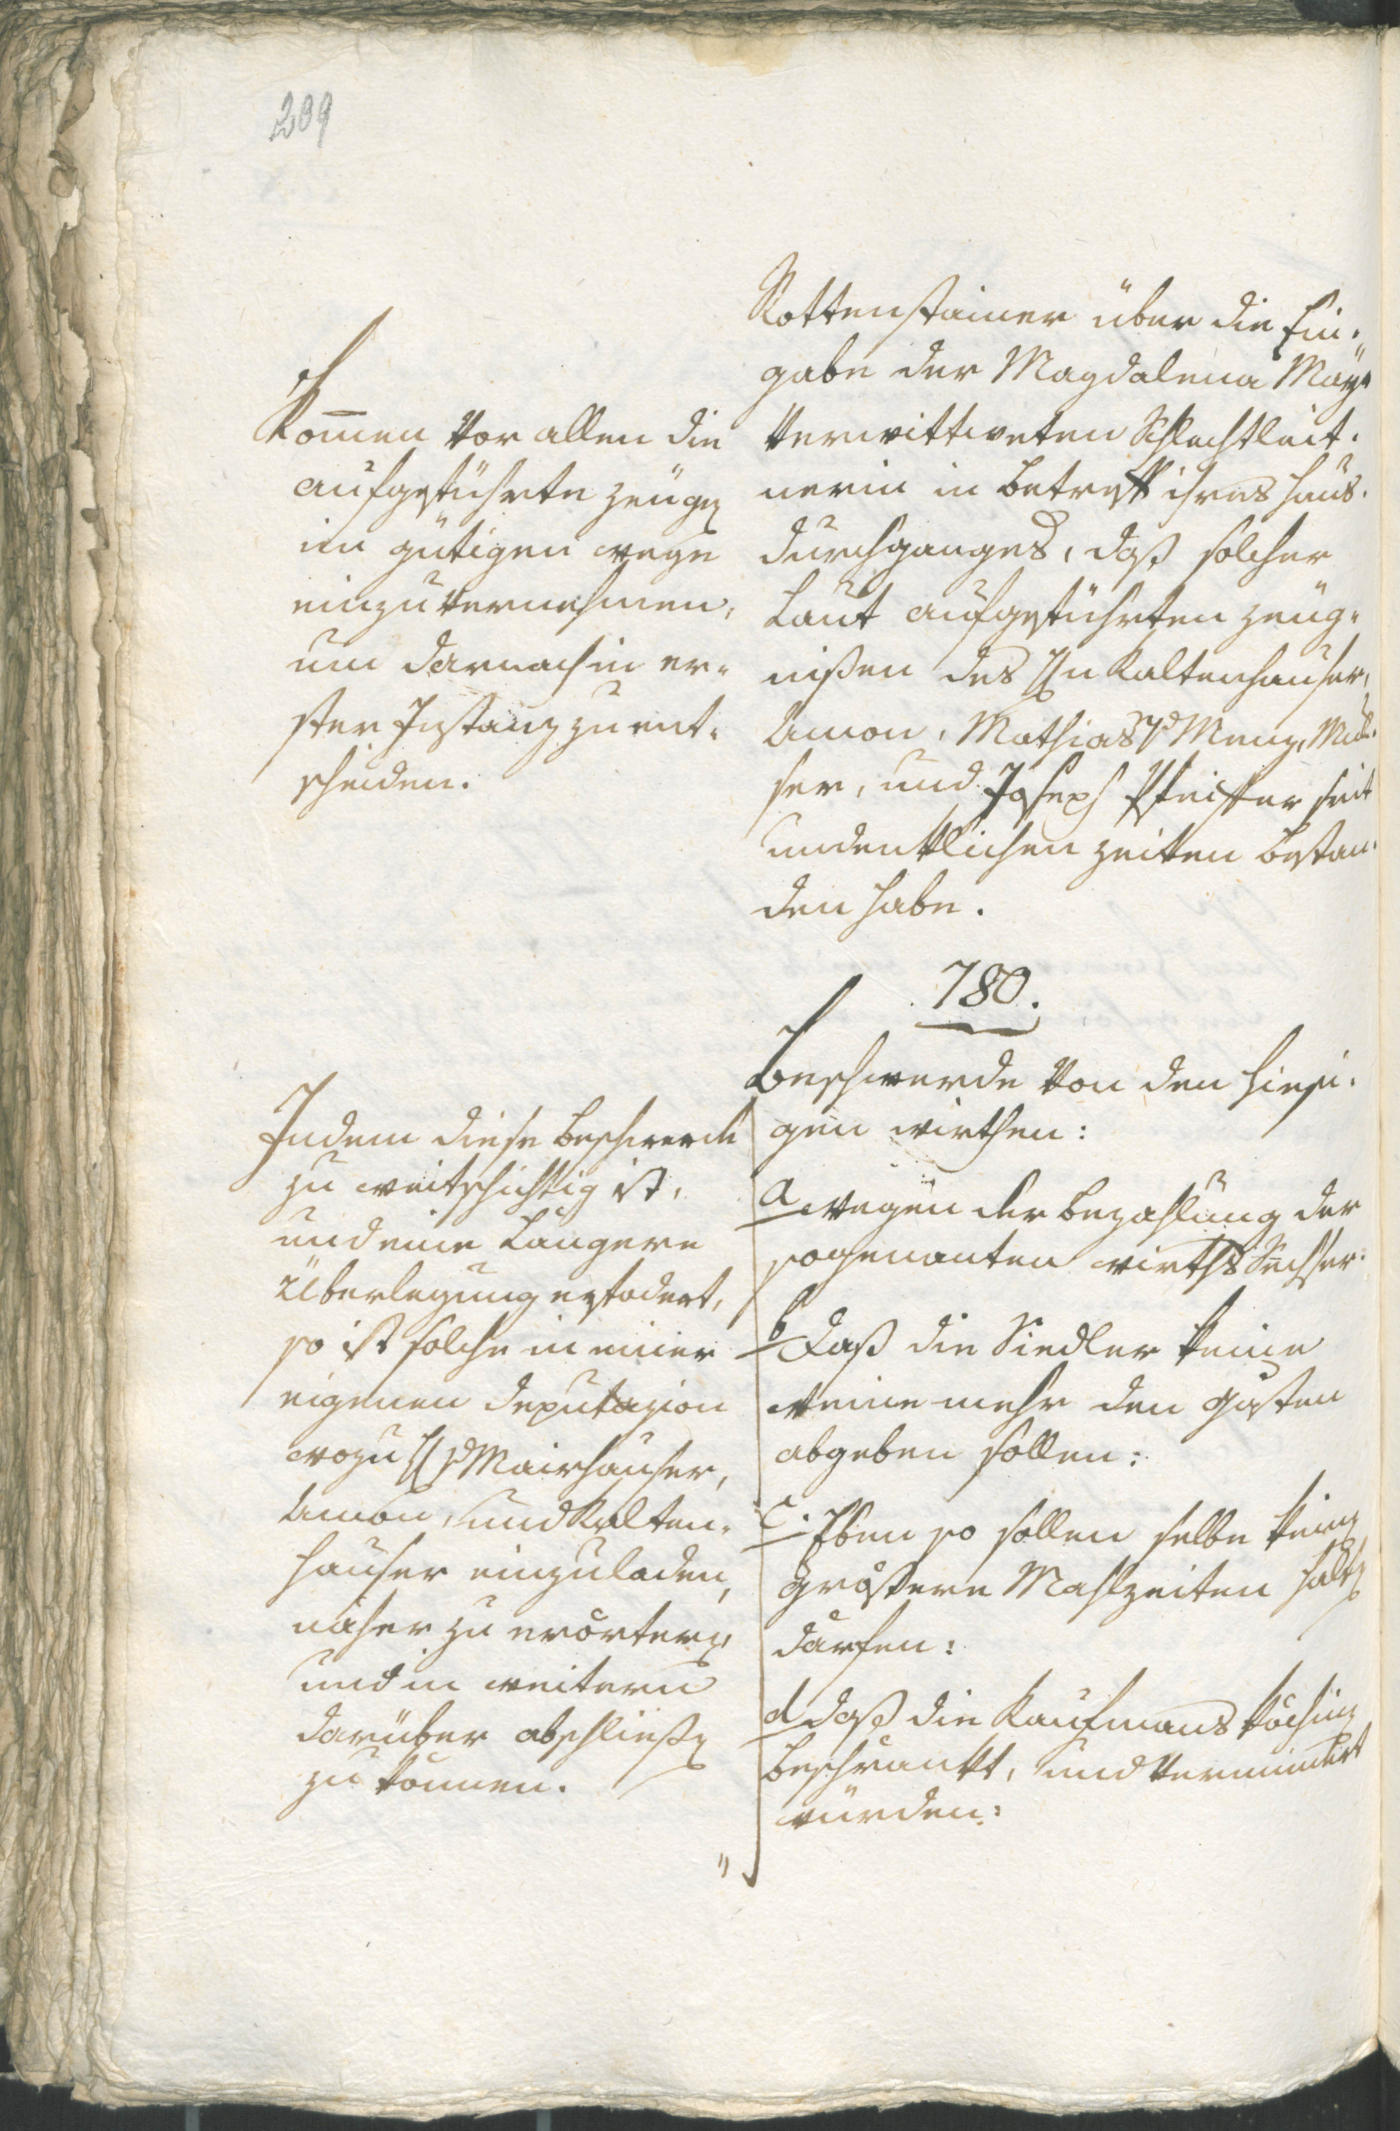 209
Rottenstainer über die Ein-
gabe der Magdalena Mayr
verwittweten Schlechtleit-
nerin in betreff ihres Haus-
durchganges, daß solcher
Laut aufgeführten Zeüg-
nißen des Hn Kaltenhauser,
Amon, Mathias v Menz, Mu-
ser, und Joseph Pfeiffer seit
undenklichen Zeiten bestan-
den habe.
Komen vor allen die
aufgeführte Zeügen
im gütigen wege
einzuvernehmen,
um darnach in er-
ster Instanz zu ent-
scheiden.
780.
Beschwerde von den hiesi-
gen wirthen:
a wegen der bezahlung der
sogenanten wirths
b daß die Siedler keine
weine mehr den gästen
abgeben sollen:
c. Eben so sollen selbe keine
größere Mahlzeiten halten
därfen:
d daß die Kaufmans köchinen
beschränkt, und vermindert
würden:
Indem diese beschwerde
zu weitschichtig ist,
und eine Längere
Überlegung erfodert,
so ist solche in einer
eigenen deputazion
wozu H v Mairhauser,
Amon, und Kalten-
hauser einzuladen,
näher zu erörtern,
und in weitern
darüber abschließen
zu können.
"